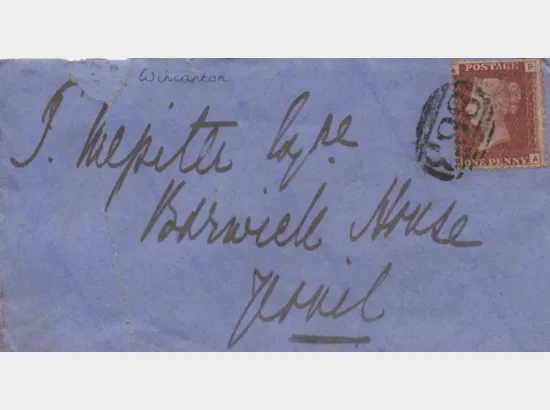 Wincanton
POSTAGE
T. Messiter Esqre
ONE PENNY
Barwick House
Yeovil